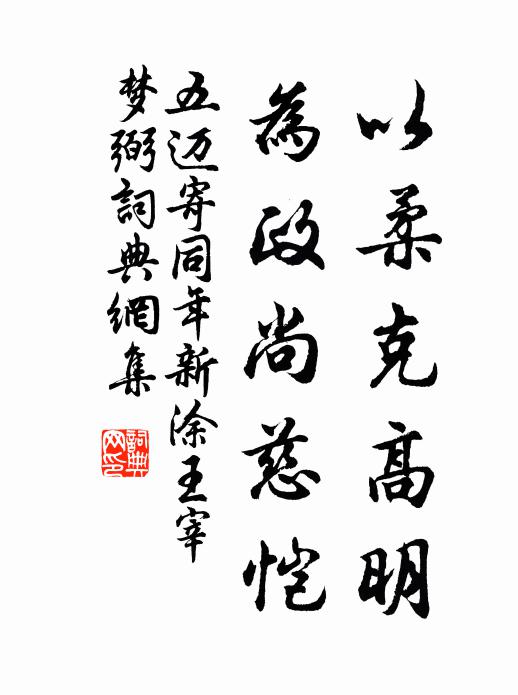 以柔克高明
為政尚慈恺
五迈寄同年新涂王宰
梦弼詞典網集
詞典網印